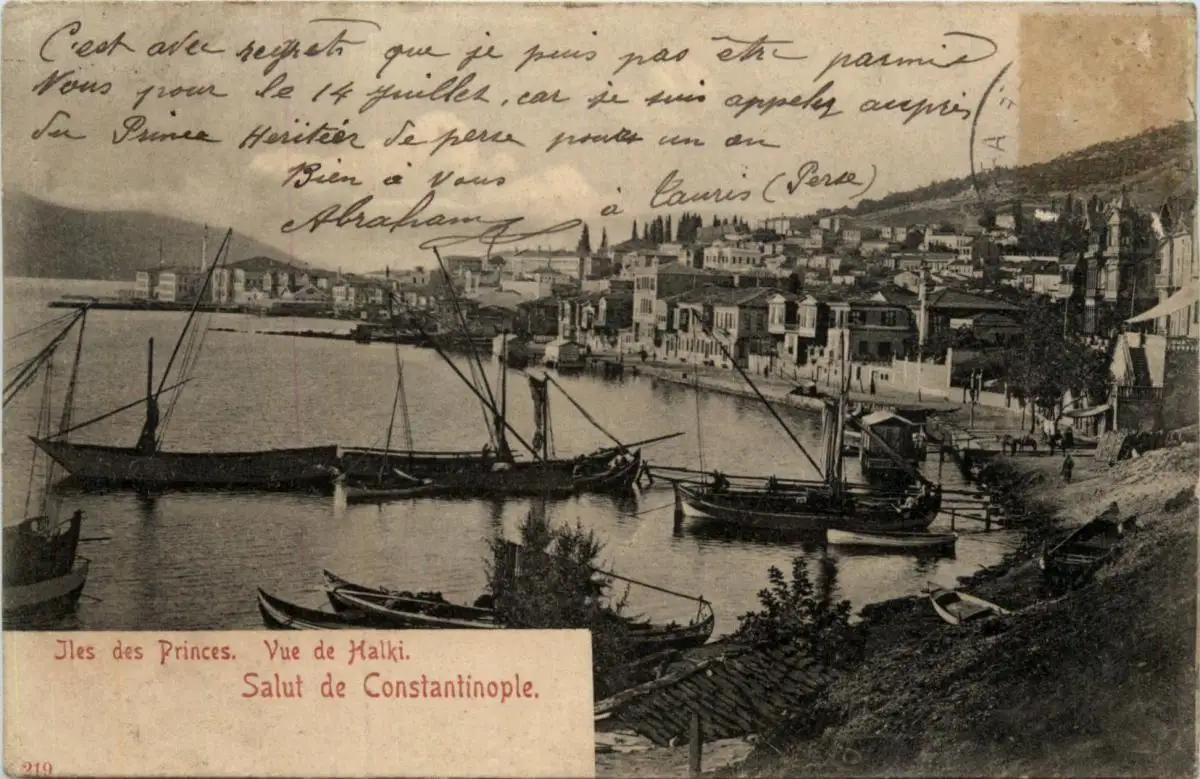 C'est avec regrets que je puis pas être parmis
Vous pour le 14 Juillet, car je suis appeley auprès
du Prince Heritiér de perse pour un an
Bien à vous
à Tauris (Perse)
Abraham
Iles des Princes. Vue de Halki.
Salut de Constantinople.
219